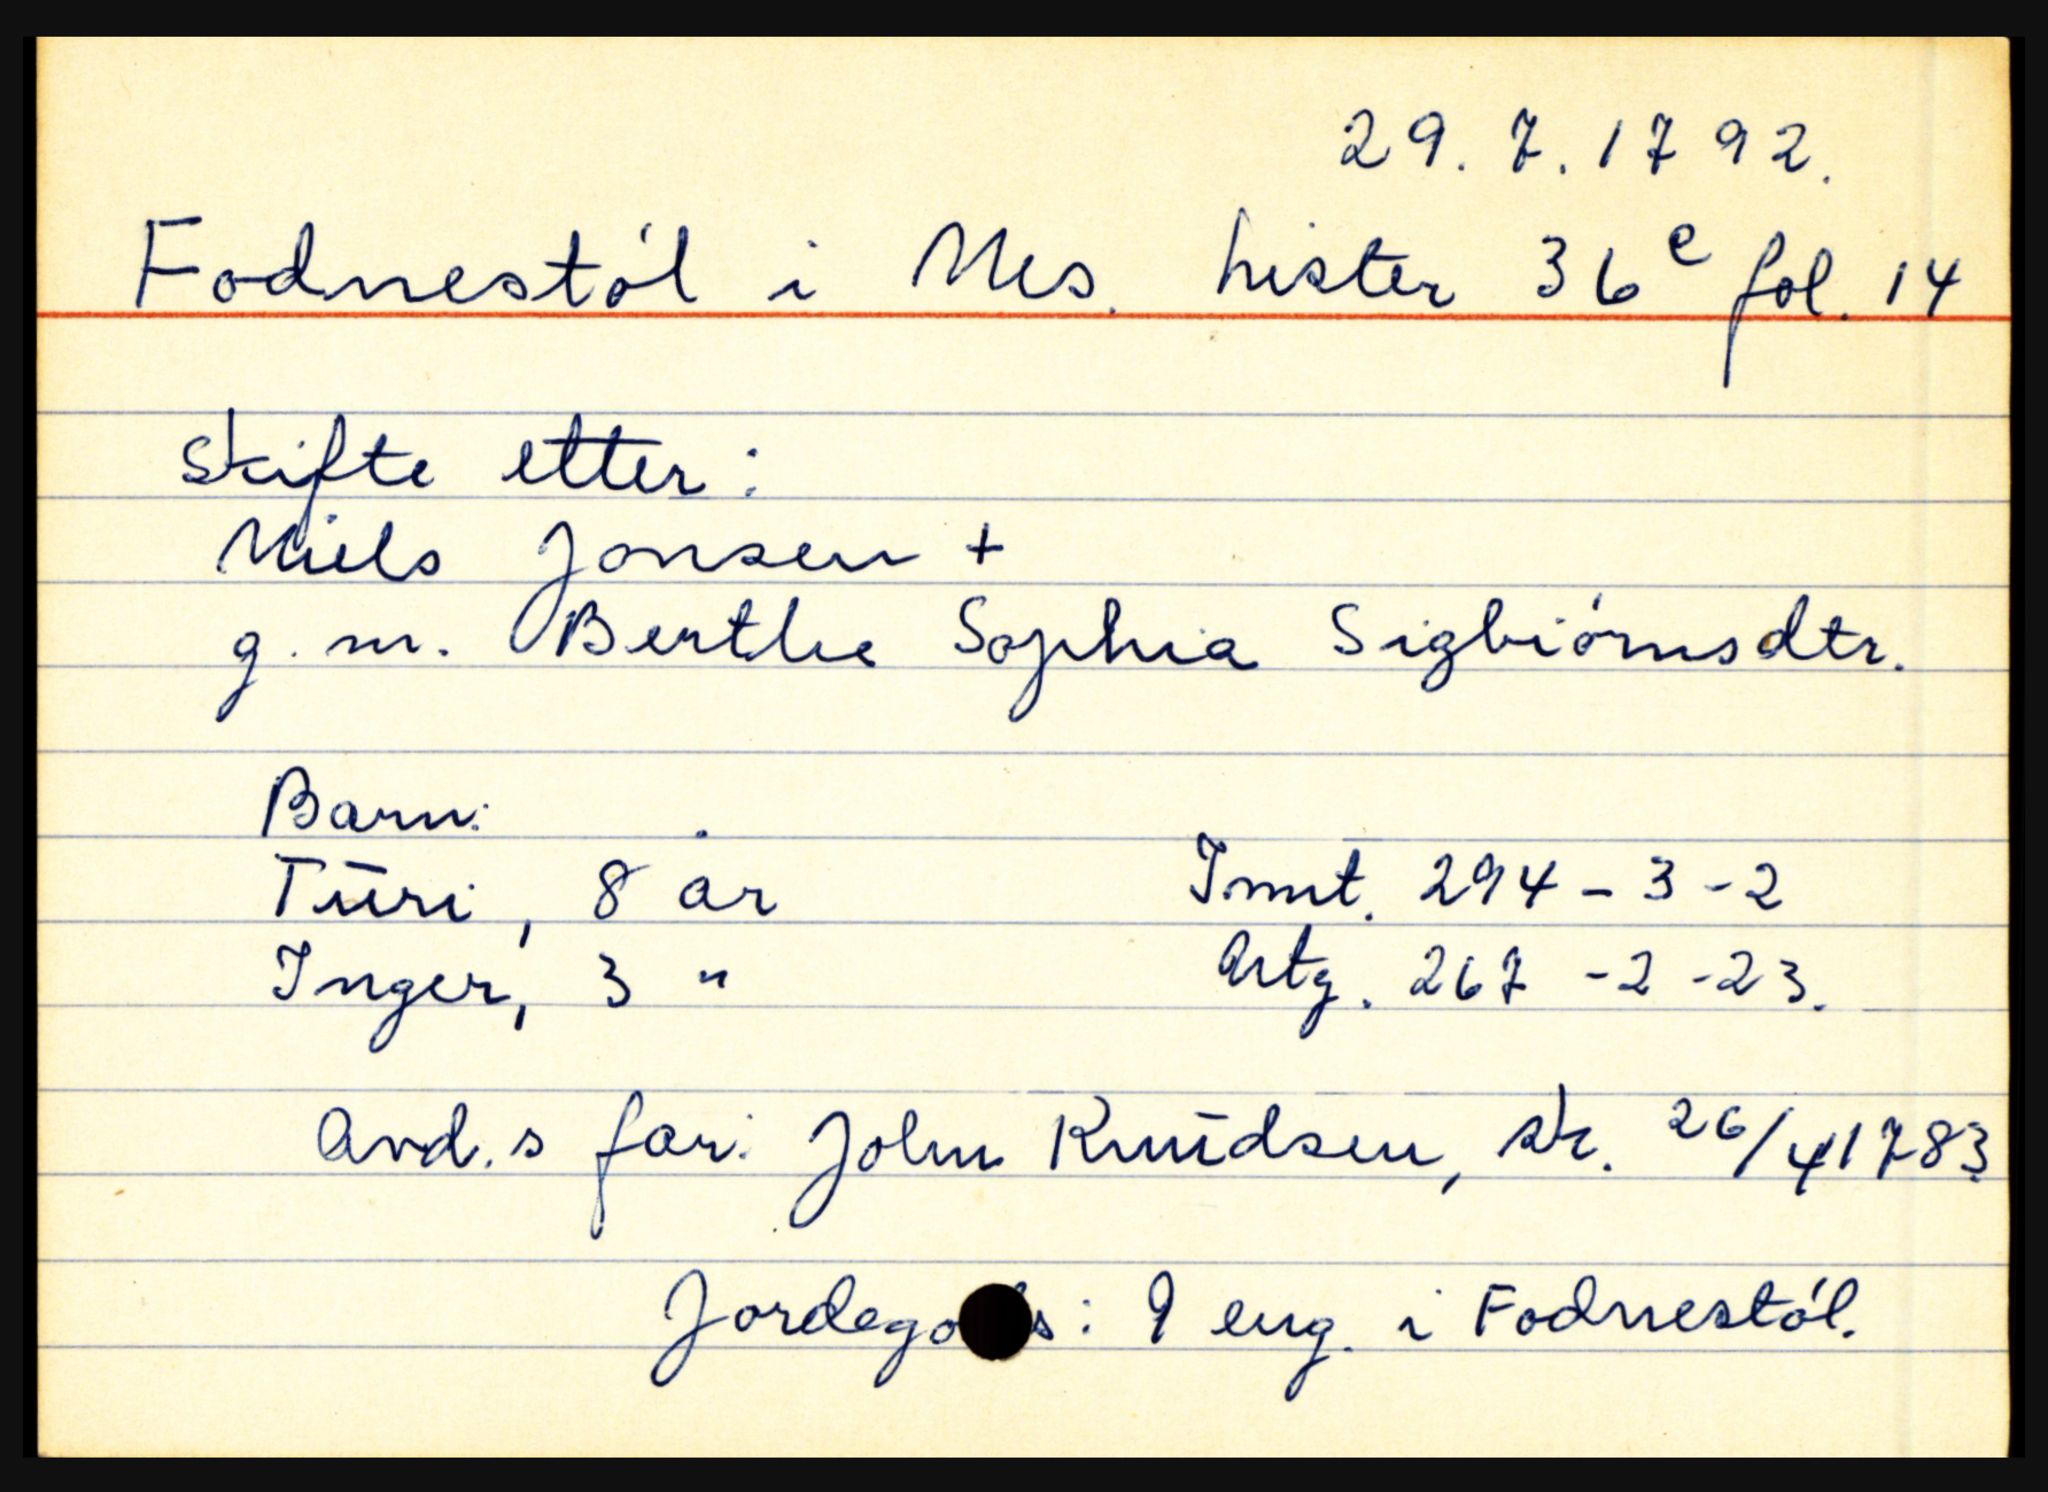 29.7.1792.
Fodnestól i Nes. Lister 36e fol. 14
Skifte etter:
Niels Jonsen +
g.m. Berthe Sophia Sigbiórnsdtr.
Barn:
Tūri, 8 år Innt. 294-3-2
Inger, 3 " Artg. 267-2-23.
Avd.s far: John Knūdsen, sk. 26/4 1783
Jordegods: 9 eng. i Fodnestól.